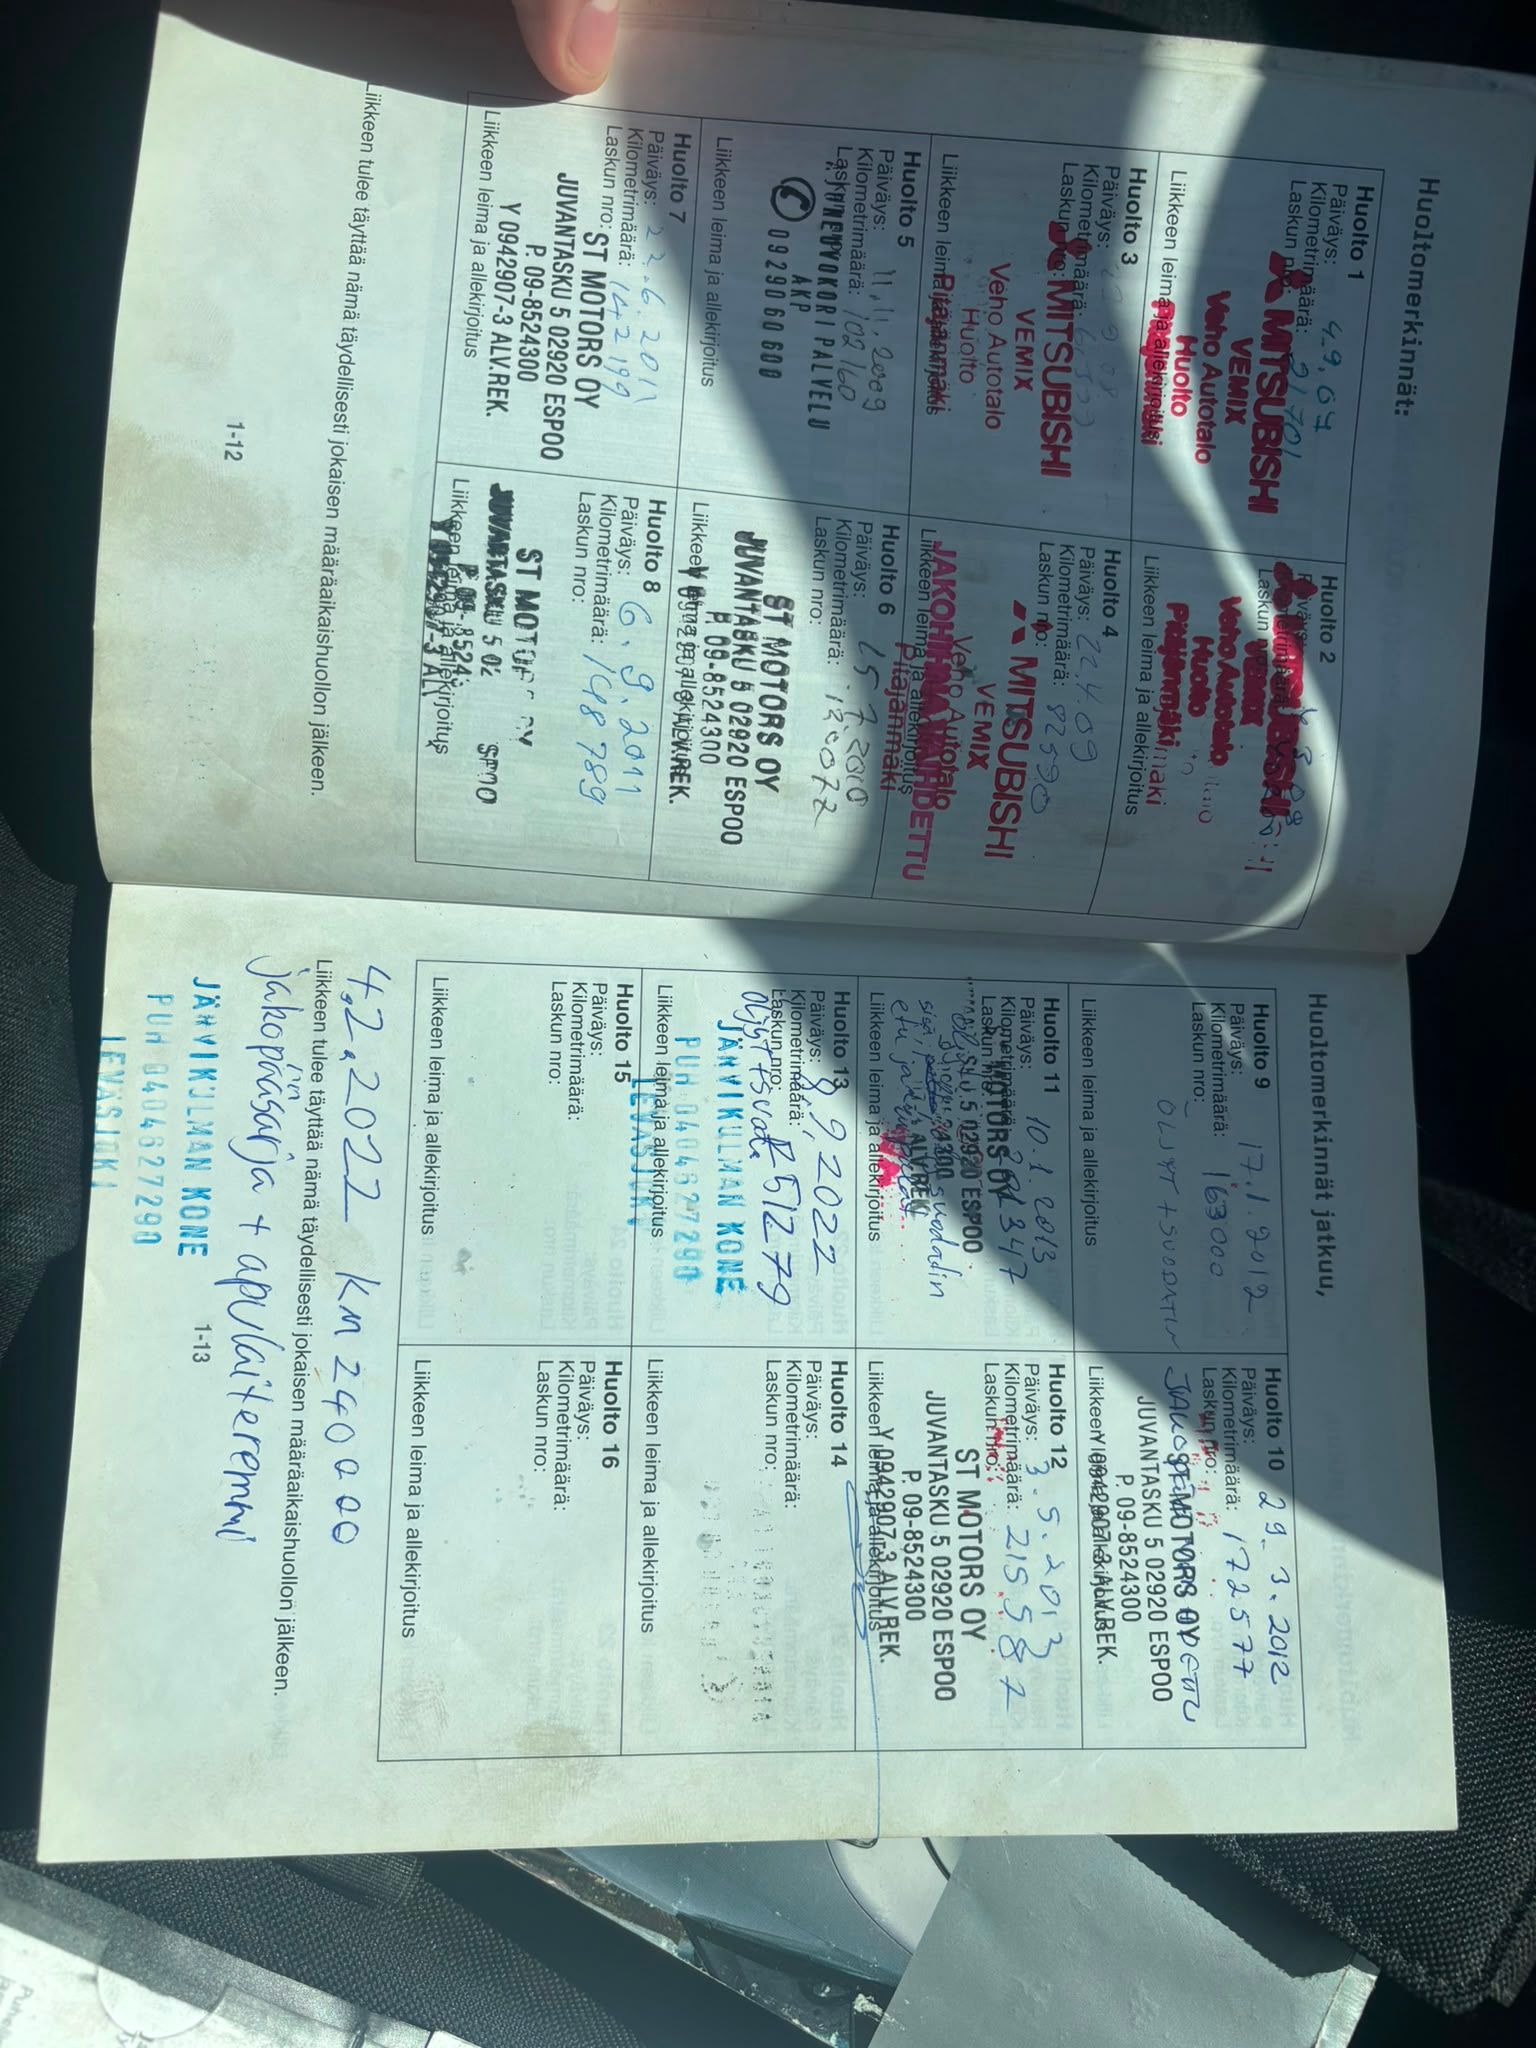 Huoltomerkinnät:
Huolto 1
Päiväys: 4.9.07
Kilometrimäärä: 21701
Laskun nro:
MITSUBISHI
VEMIX
Veho Autotalo
Huolto
Pitäjänmäki
Liikkeen leima ja allekirjoitus
Huolto 2
Päiväys:
Laskun
VEMIX
Veho Autotalo
Huolto
Pitäjänmäki
Liikkeen leima ja allekirjoitus
Huolto 3
Päiväys:
Kilometrimäärä:
Laskun nro:
MITSUBISHI
VEMIX
Veho Autotalo
Huolto
Pitäjänmäki
Liikkeen leima ja allekirjoitus
Huolto 4
Päiväys: 22.4.09
Kilometrimäärä: 82590
Laskun nro:
MITSUBISHI
VEMIX
Veho Autotalo
Pitäjänmäki
JAKOHIHNA VAIHDETTU
Liikkeen leima ja allekirjoitus
Huolto 5
Päiväys: 11.11.2009
Kilometrimäärä: 102160
Laskun nro:
PALVELU
AKP
0929060600
Liikkeen leima ja allekirjoitus
Huolto 6
Päiväys: 15 7 2010
Kilometrimäärä:
Laskun nro:
ST MOTORS OY
JUVANTASKU 5 02920 ESPOO
P. 09-8524300
Liikkeen leima ja allekirjoitus
Huolto 7
Päiväys: 22.6.2011
Kilometrimäärä: 142199
Laskun nro:
ST MOTORS OY
JUVANTASKU 5 02920 ESPOO
P. 09-8524300
Y 0942907-3 ALV.REK.
Liikkeen leima ja allekirjoitus
Huolto 8
Päiväys: 6.9.2011
Kilometrimäärä: 148789
Laskun nro:
ST MOTORS OY
Liikkeen leima ja allekirjoitus
Liikkeen tulee täyttää nämä täydellisesti jokaisen määräaikaishuollon jälkeen.
1-12
Huoltomerkinnät jatkuu,
Huolto 9
Päiväys: 17.1.2012
Kilometrimäärä: 163000
Laskun nro:
ÖLJYT + SUODATIN
Liikkeen leima ja allekirjoitus
Huolto 10
Päiväys: 29.3.2012
Kilometrimäärä: 172577
Laskun nro:
ST MOTORS OY
JUVANTASKU 5 02920 ESPOO
P. 09-8524300
Y 0942907-3 ALV.REK.
Liikkeen leima ja allekirjoitus
Huolto 11
Päiväys: 10.1.2013
Kilometrimäärä:
Laskun nro:
MOTORS OY
5 02920 ESPOO
ALV.REK.
Liikkeen leima ja allekirjoitus
Huolto 12
Päiväys: 3.5.2013
Kilometrimäärä: 215587
Laskun nro:
ST MOTORS OY
JUVANTASKU 5 02920 ESPOO
P. 09-8524300
Y 0942907-3 ALV.REK.
Liikkeen leima ja allekirjoitus
Huolto 13
Päiväys: 9.2022
Kilometrimäärä:
Laskun nro:
JÄRVIKULMAN KONE
PUH 0404627290
LEVÄSJOKI
Liikkeen leima ja allekirjoitus
Huolto 14
Päiväys:
Kilometrimäärä:
Laskun nro:
Liikkeen leima ja allekirjoitus
Huolto 15
Päiväys:
Kilometrimäärä:
Laskun nro:
Liikkeen leima ja allekirjoitus
Huolto 16
Päiväys:
Kilometrimäärä:
Laskun nro:
Liikkeen leima ja allekirjoitus
4.2.2022 KM 240000
Liikkeen tulee täyttää nämä täydellisesti jokaisen määräaikaishuollon jälkeen.
jakopääsarja + apulaiteremmi
1-13
JÄRVIKULMAN KONE
PUH 0404627290
LEVÄSJOKI